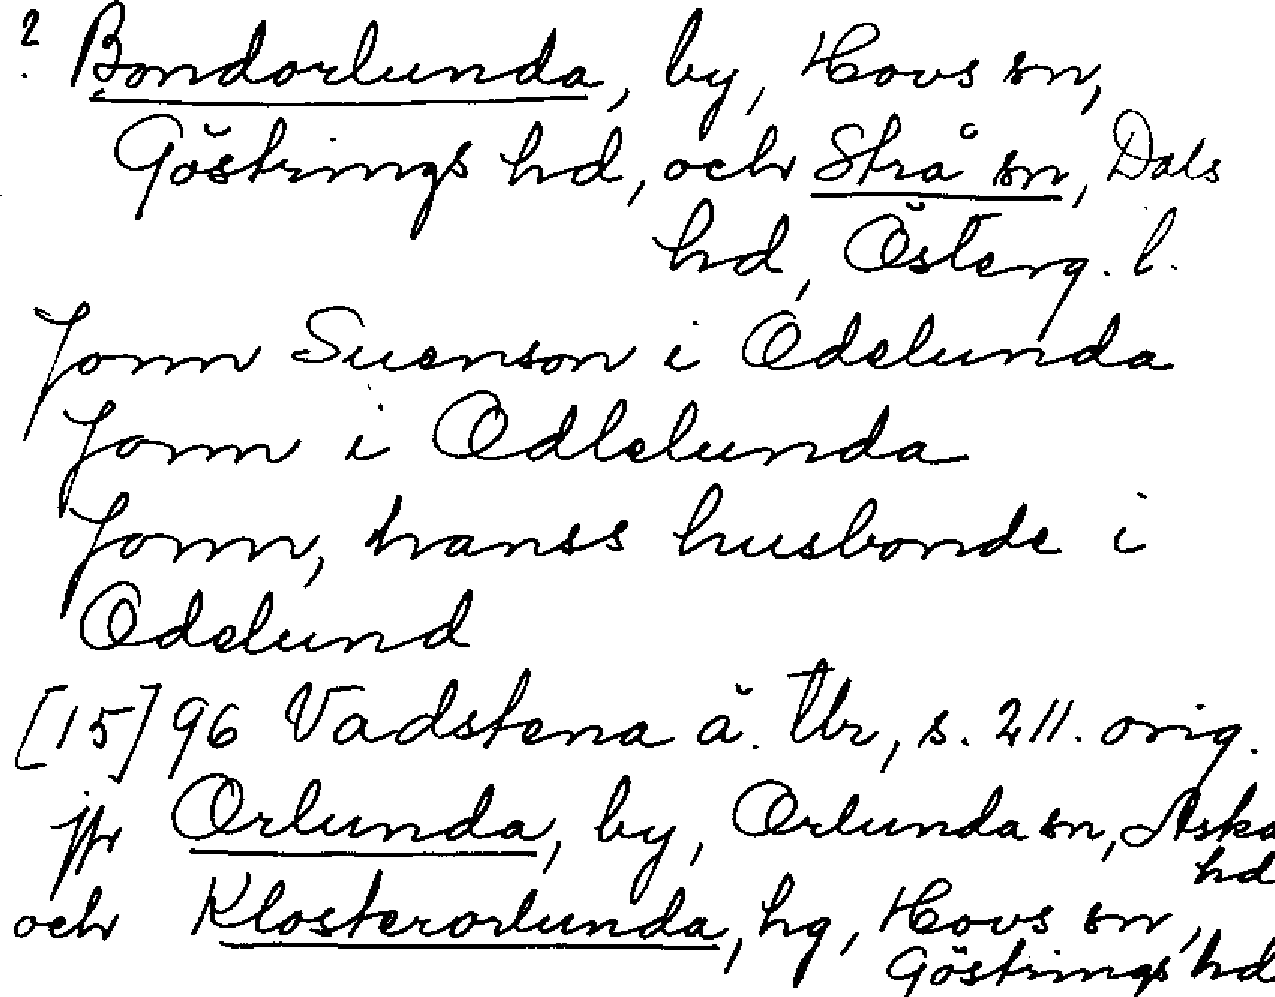 ? Bondorlunda, by, Hovs sn,
Göstrings hd, och Strå sn, Dals
hd, Österg. l.
Jonn Suenson i Odelunda
Jonn i Odlelunda
Jonn, hanss husbonde i
Odelund
[15]96 Vadstena ä. Tbr, s. 211. orig.
jfr Orlunda, by, Orlunda sn, Aska
hd
och Klosterorlunda, hg, Hovs sn,
Göstrings hd